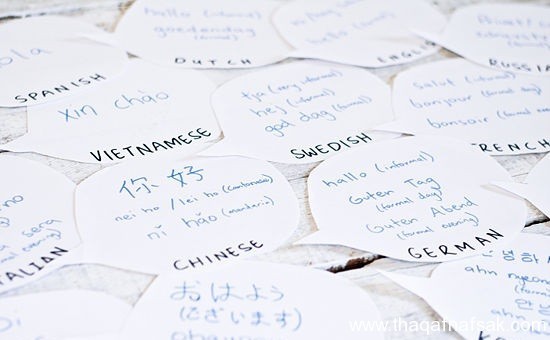 hola
SPANISH
hallo (informal)
goedendag
(formal)
DUTCH
hello (informal)
ENGLISH
RUSSIAN
xin chào
VIETNAMESE
tja (very informal)
hej (informal)
god dag (formal)
SWEDISH
salut (informal)
bonjour (formal day)
bonsoir (formal evening)
FRENCH
sera
(formal evening)
ITALIAN
你好
nei ho / lei ho (cantonese)
nǐ hǎo (mandarin)
CHINESE
hallo (informal)
Guten Tag
(formal day)
Guten Abend
(formal evening)
GERMAN
안녕하
ahn nyeong
(formal
안녕
ahn
KO
おはよう
(ございます)
ohayou
www.thaqafnafsak.com